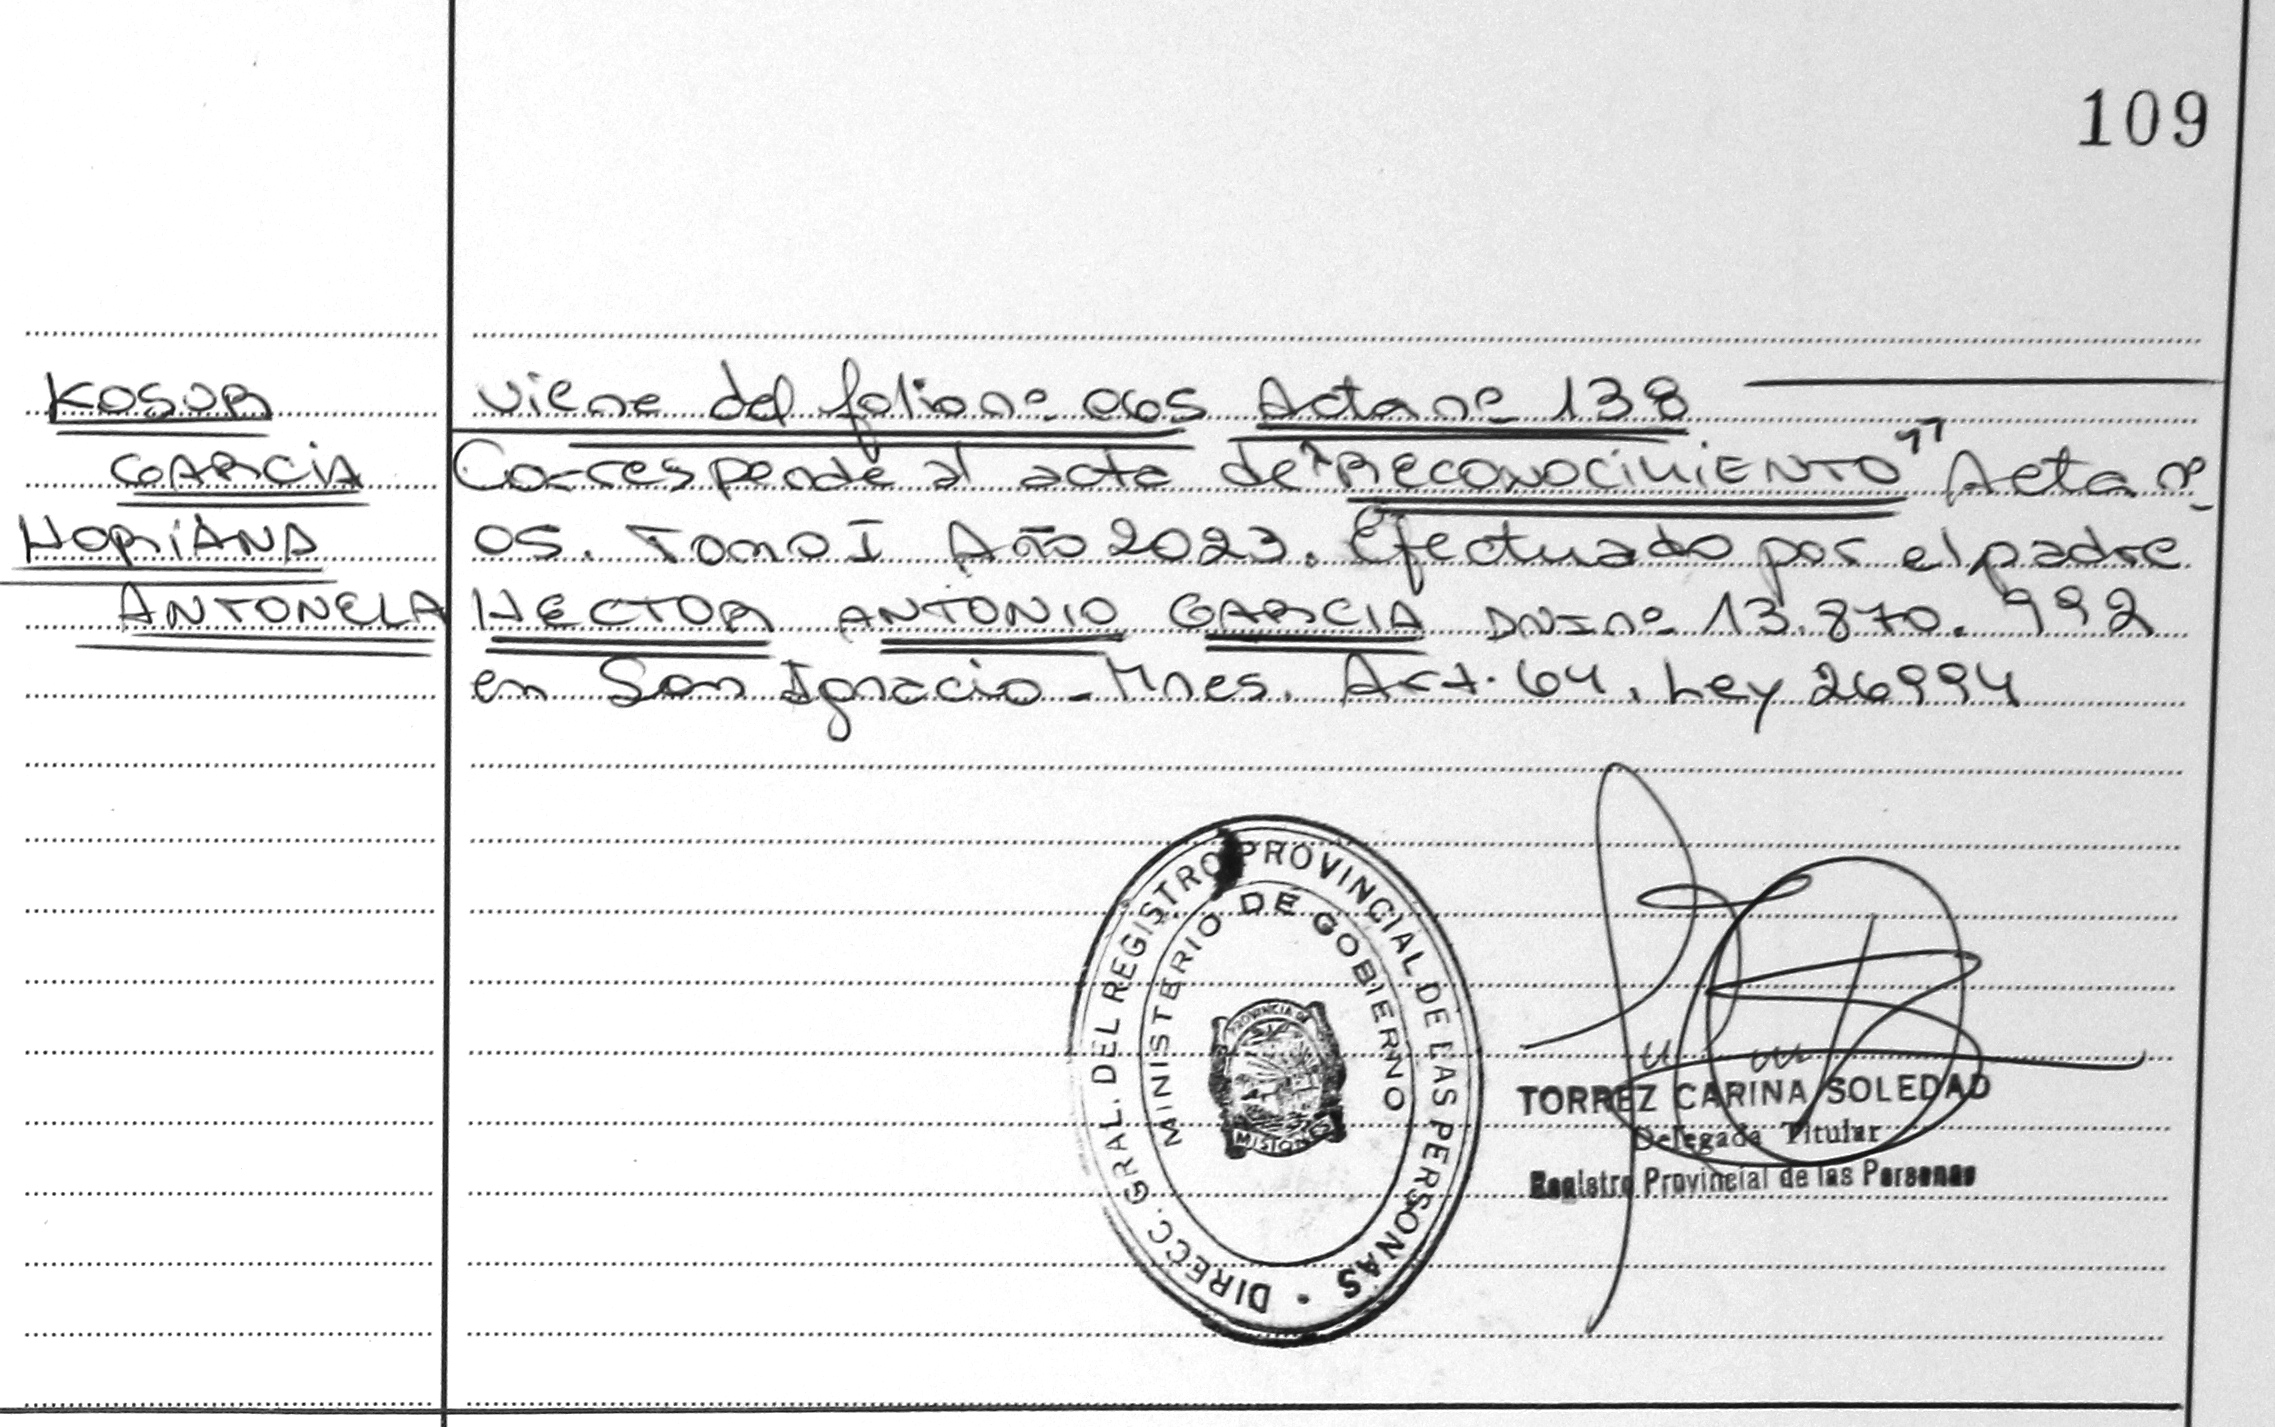 109
KOSUR
GARCIA
HORIANA
ANTONELA
viene del folio nº 065 Acta nº 138
Corresponde al acta de "RECONOCIMIENTO" Acta nº
05. Tomo I Año 2023. Efectuado por el padre
HECTOR ANTONIO GARCIA DNI nº 13.870.992
en San Ignacio - Mnes. Art. 64. Ley 26994
DIRECC. GRAL. DEL REGISTRO PROVINCIAL DE LAS PERSONAS
MINISTERIO DE GOBIERNO
PROVINCIA DE
MISIONES
TORREZ CARINA SOLEDAD
Delegada Titular
Registro Provincial de las Personas